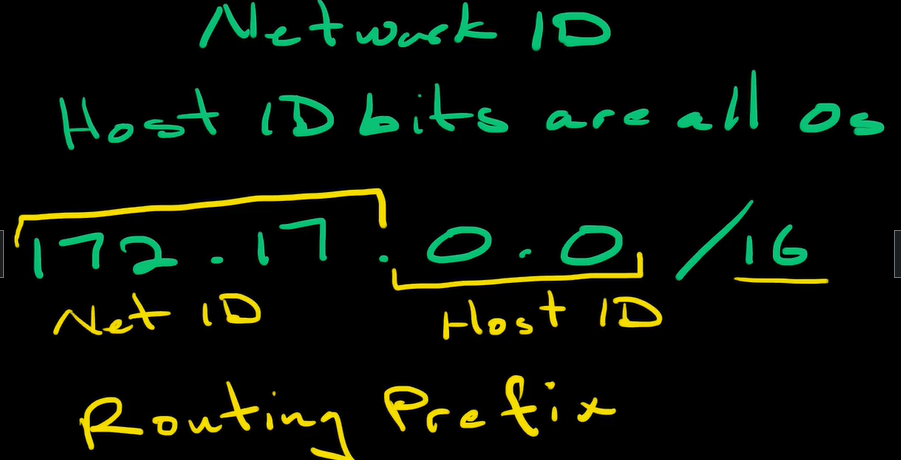 Network ID
Host ID bits are all 0s
172.17.0.0/16
Net ID Host ID
Routing Prefix